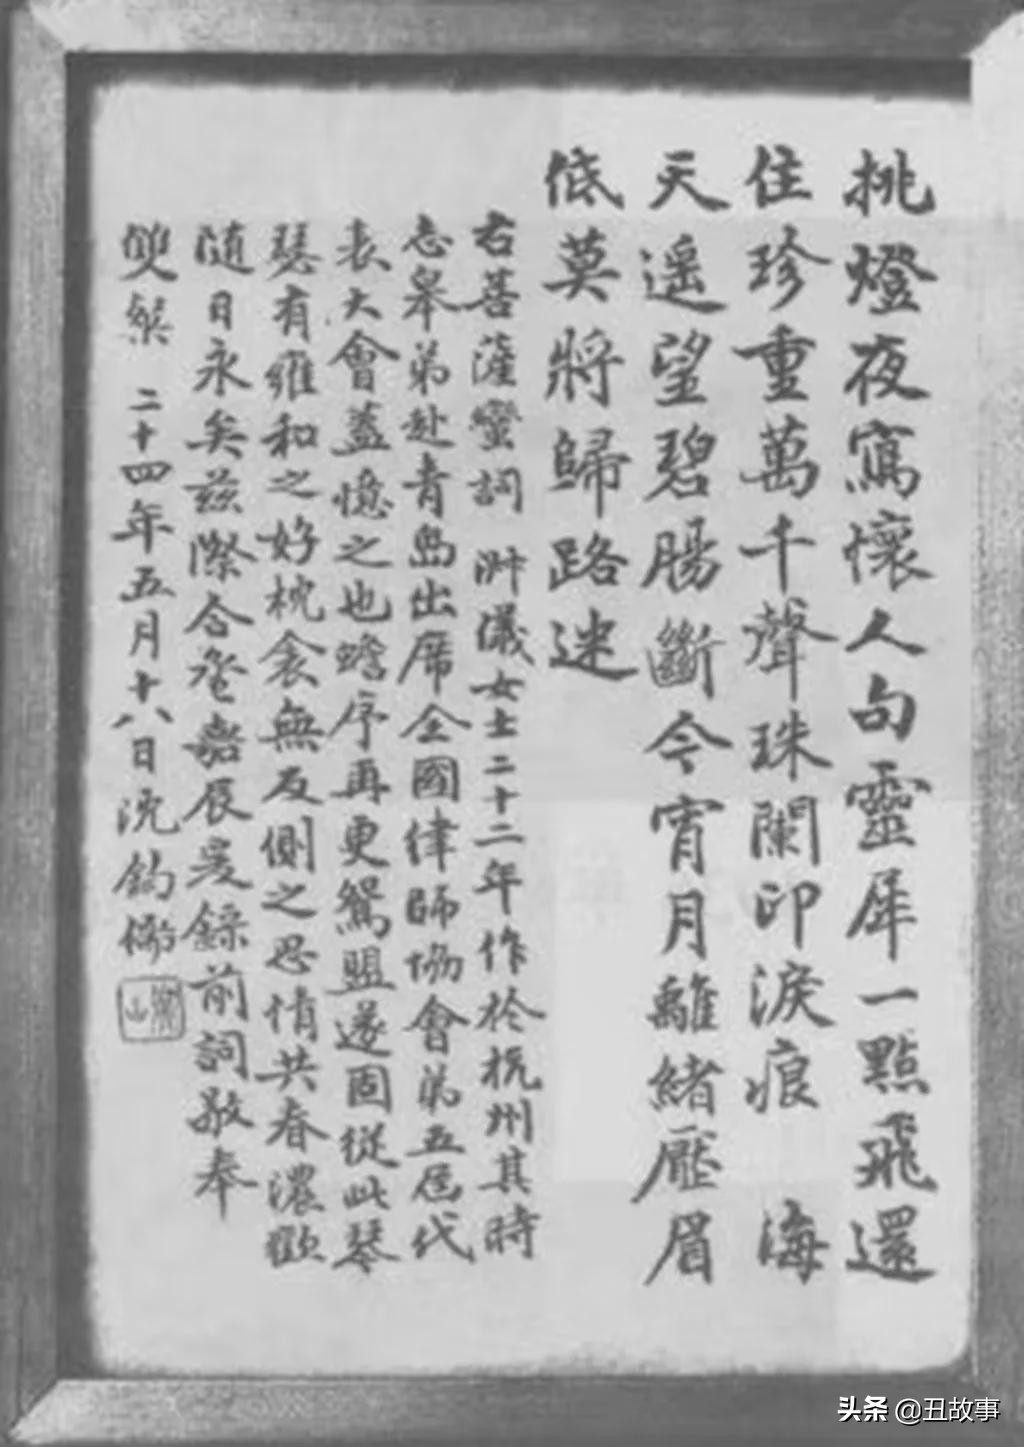 挑燈夜寫懷人句靈犀一點飛還
住珍重萬千聲珠闌印淚痕 海
天遥望碧腸斷今宵月離緒壓眉
低莫將歸路迷
右菩薩蠻詞 儀女士二十二年作於杭州其時
志皋弟赴青島出席全國律師協會第五屆代
表大會蓋憶之也蟾序再更鴛盟遂固從此琴
瑟有雍和之好枕衾無反側之思情共春濃歡
隨日永矣兹際合巹嘉辰爰錄前詞敬奉
雙粲 二十四年五月十八日沈鈞儒
头条 @丑故事